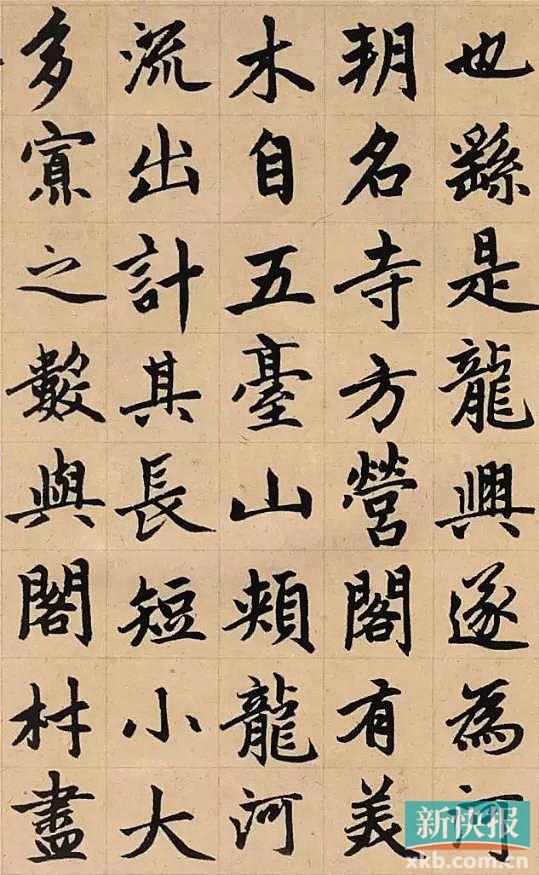 也繇是龍興遂為河
朔名寺方營閣有美
木自五臺山頰龍河
流出計其長短小大
多寡之數與閣材盡
新快报
xkb.com.cn